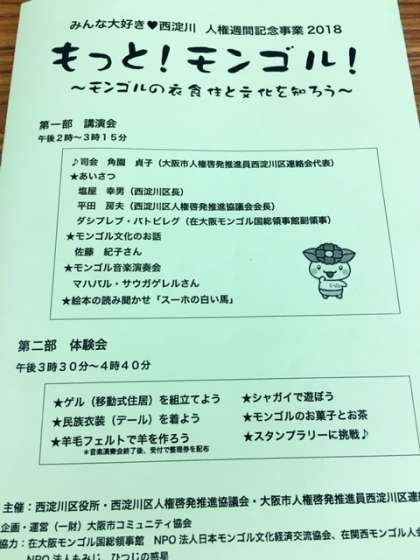 みんな大好き♥西淀川　人権週間記念事業2018
もっと！モンゴル！
～モンゴルの衣食住と文化を知ろう～
第一部　講演会
午後2時～3時15分
♪司会　角園　貞子（大阪市人権啓発推進員西淀川区連絡会代表）
★あいさつ
塩屋　幸男（西淀川区長）
平田　房夫（西淀川区人権啓発推進協議会会長）
ダシプレブ・バトビレグ（在大阪モンゴル国総領事館副領事）
★モンゴル文化のお話
佐藤　紀子さん
★モンゴル音楽演奏会
マハバル・サウガゲレルさん
★絵本の読み聞かせ「スーホの白い馬」
第二部　体験会
午後3時30分～4時40分
★ゲル（移動式住居）を組立てよう　★シャガイで遊ぼう
★民族衣装（デール）を着よう　★モンゴルのお菓子とお茶
★羊毛フェルトで羊を作ろう　★スタンプラリーに挑戦♪
＊音楽演奏会終了後、受付で整理券を配布
主催：西淀川区役所・西淀川区人権啓発推進協議会・大阪市人権啓発推進員西淀川区連
企画・運営（一財）大阪市コミュニティ協会
協力：在大阪モンゴル国総領事館　NPO法人日本モンゴル文化経済交流協会、在関西モンゴル人会
NPO法人もみじ、ひつじの惑星